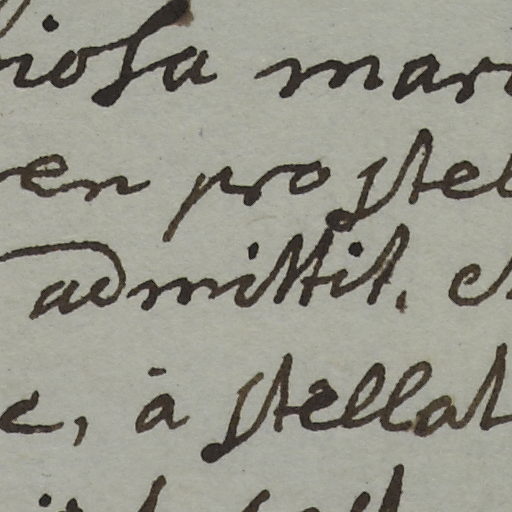 iosa mari
en pro stel
admittit. e
e, à stellat